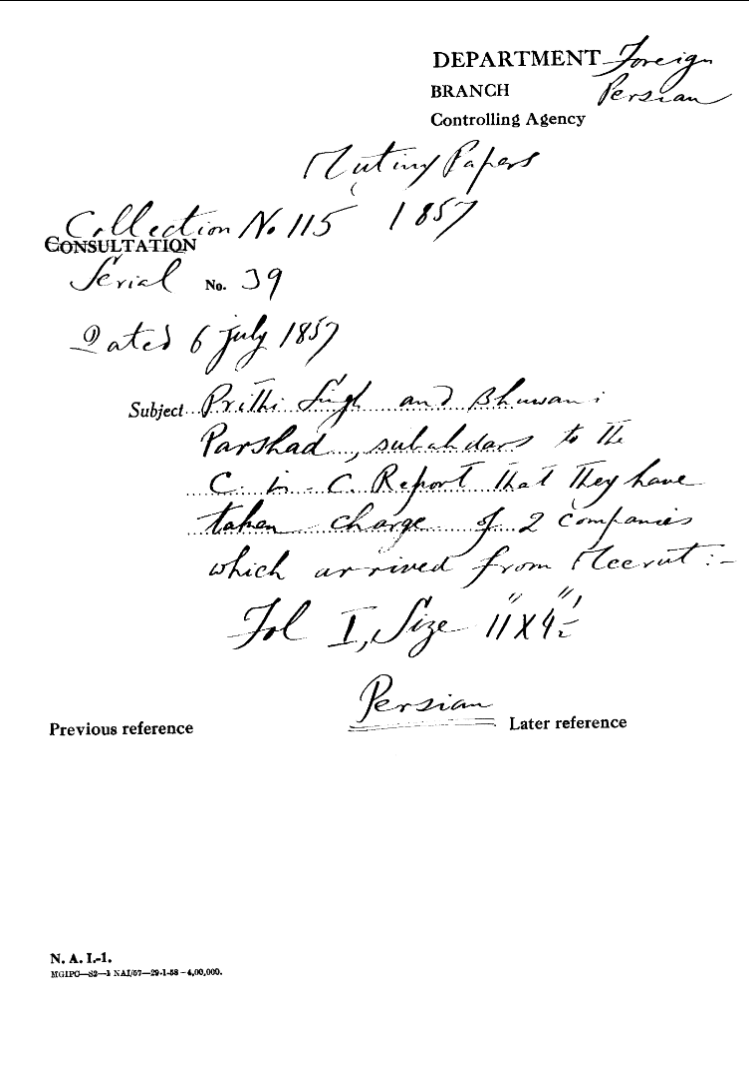 DEPARTMENT Foreign
BRANCH Persian
Controlling Agency
Mutiny Papers
Collection No 115 1857
CONSULTATION
Serial No. 39
Dated 6 July 1857
Subject Prithi Singh and Bhuwani
Parshad, subahdars to the
C-in-C. Report that they have
taken charge of 2 companies
which arrived from Meerut:-
Fol I, Size 11" X 4½"
Persian
Previous reference Later reference
N. A. I.-1.
MGIPC—S2—1 NAI/57—29-1-58—4,00,000.